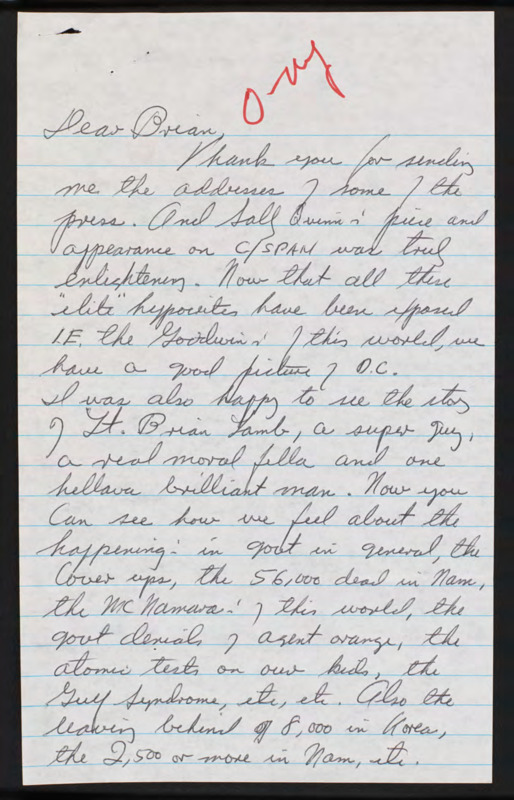 O-vg
Dear Brian,
Thank you for sending
me the addresses of some of the
press. And Sally Quinn's piece and
appearance on C/SPAN was truly
enlightening. Now that all these
"elite" hypocrites have been exposed
I.E. the Goodwins of this world, we
have a good picture of D.C.
I was also happy to see the story
of Lt. Brian Lamb, a super guy,
a real moral fella and one
hellava brilliant man. Now you
Can see how we feel about the
happenings in govt in general, the
Cover ups, the 56,000 dead in Nam,
the McNamara's of this world, the
govt denials of agent orange, the
atomic tests on our kids, the
Gulf Syndrome, etc, etc. Also the
leaving behind of 8,000 in Korea,
the 2,500 or more in Nam, etc.